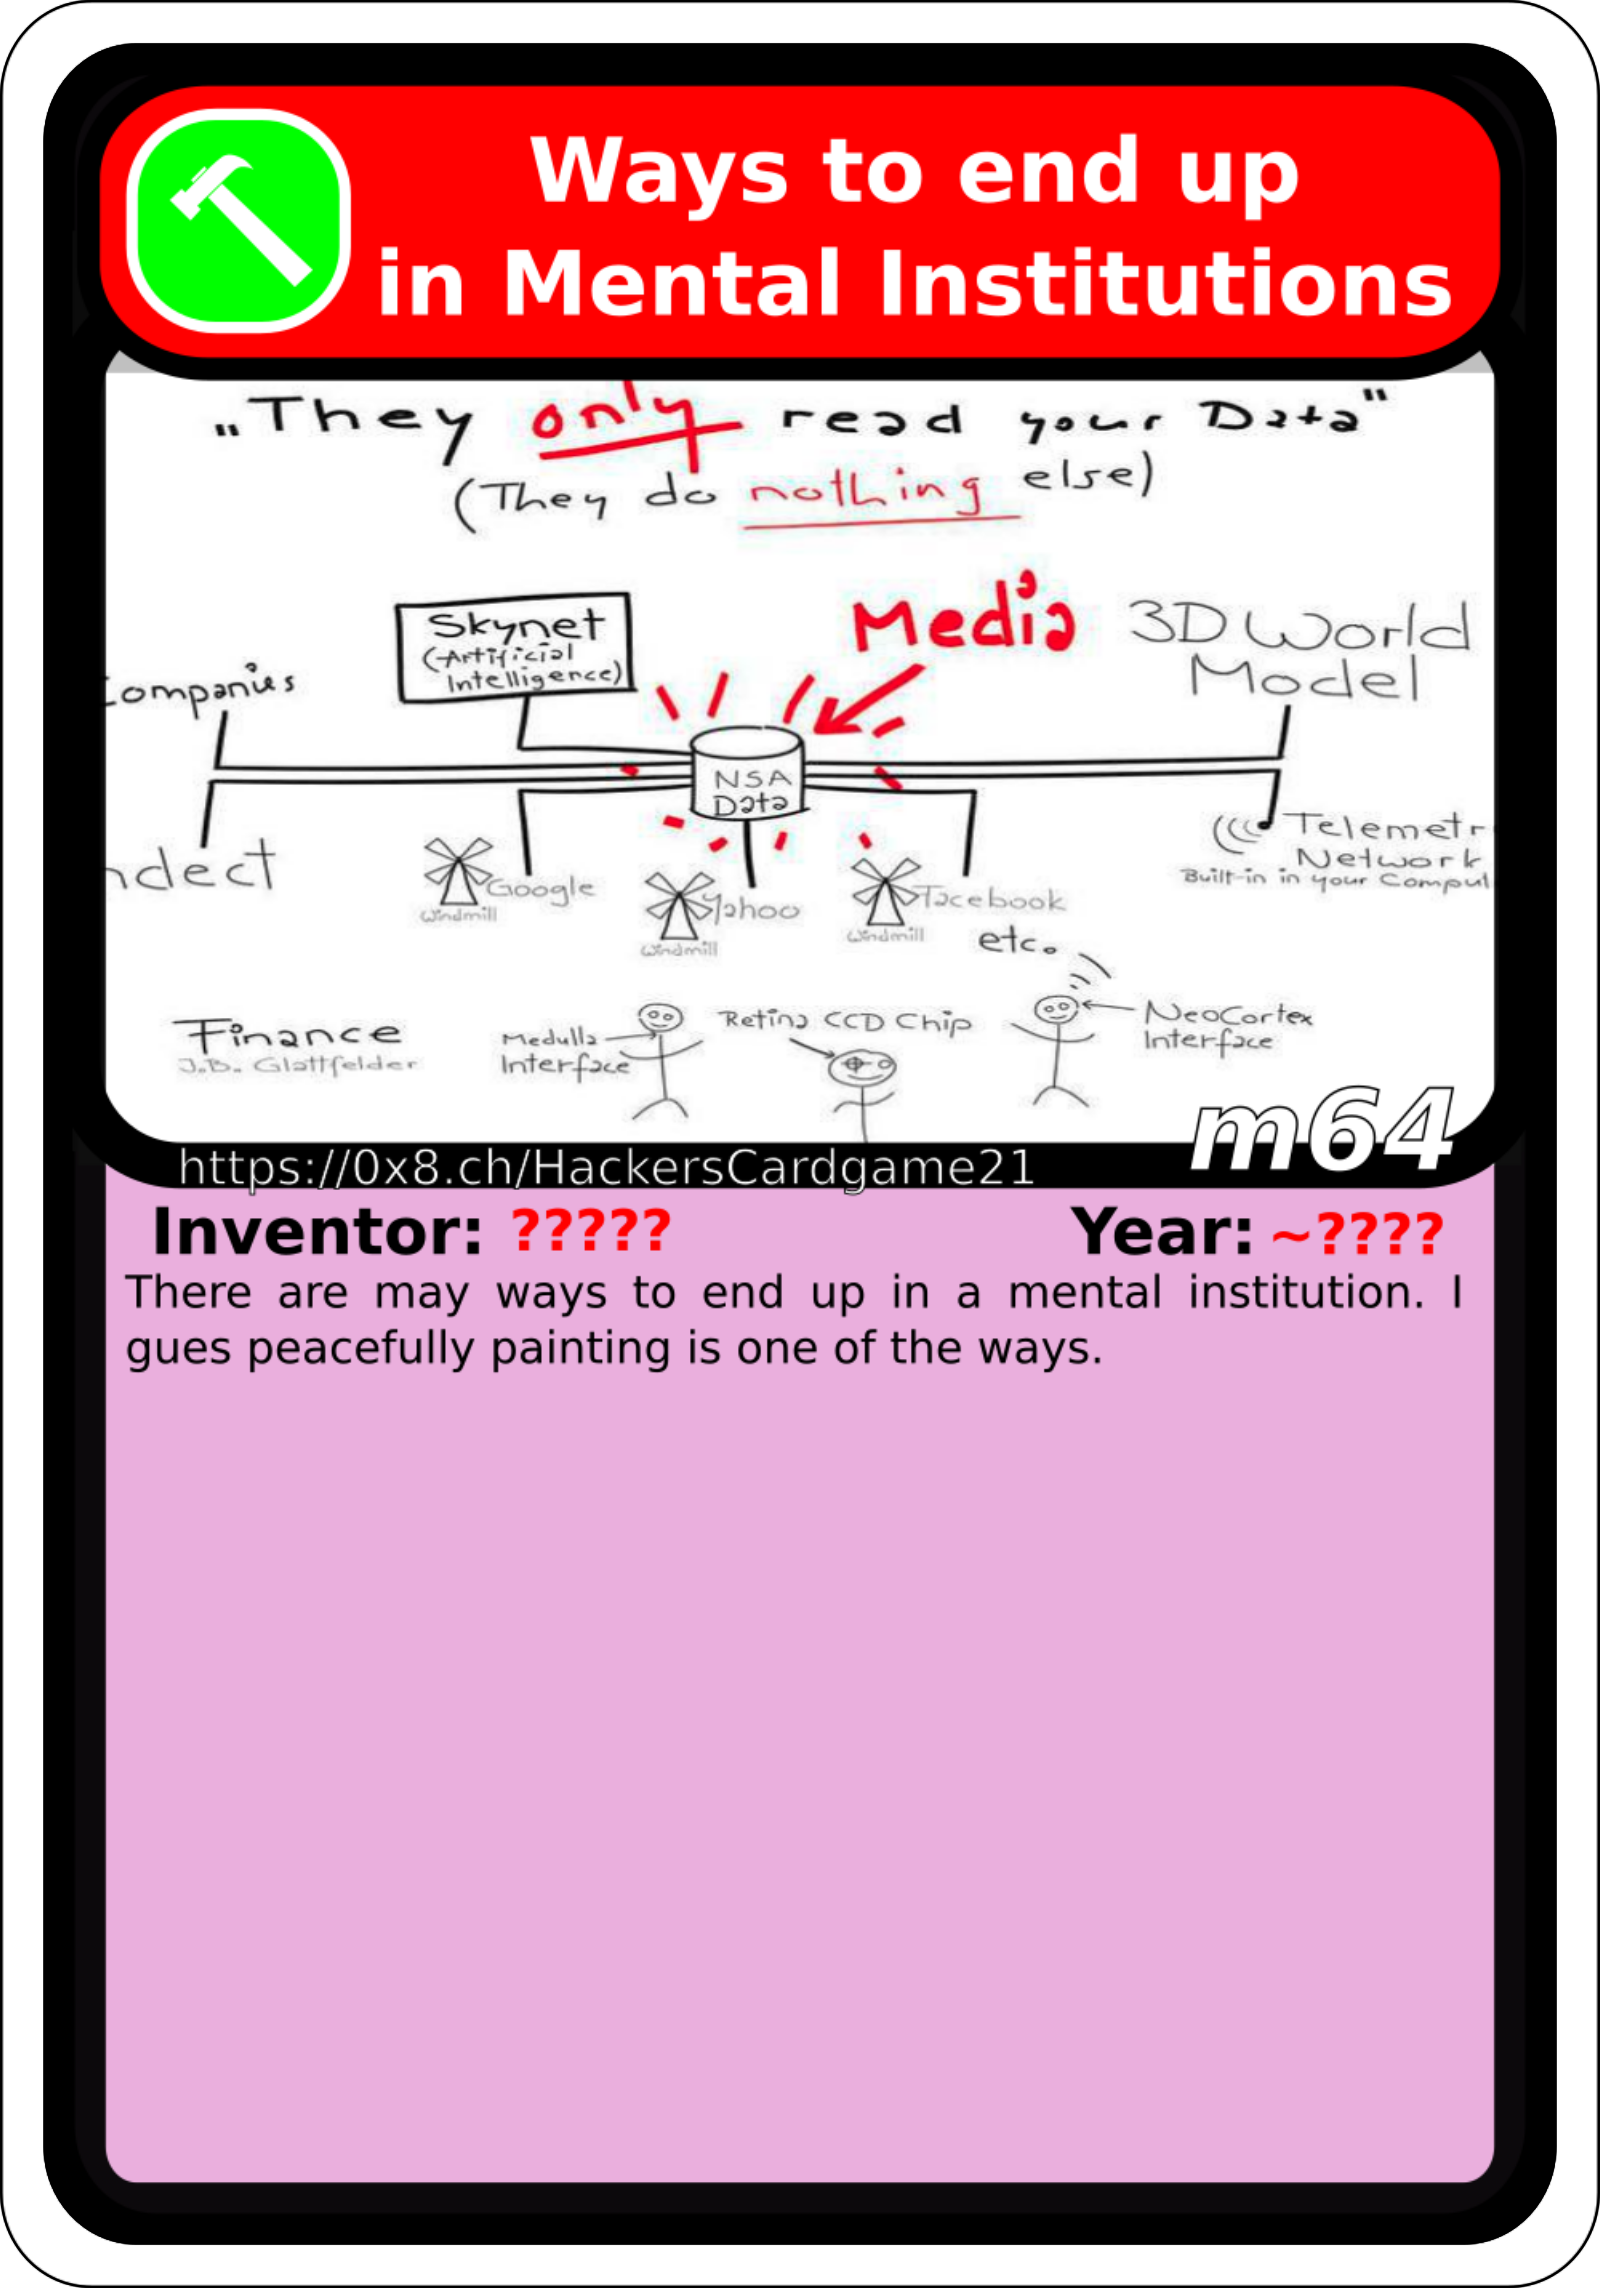 Ways to end up
in Mental Institutions
„They only read your Data"
(They do nothing else)
Media
3D World
Model
Skynet
(Artificial
Intelligence)
ompanies
NSA
Data
ndect
Google
Windmill
Yahoo
Windmill
Facebook
Windmill
etc.
Telemetr
Network
Built-in in your Comput
Finance
J.B. Glattfelder
Medulla
Interface
Retina CCD Chip
NeoCortex
Interface
m64
https://0x8.ch/HackersCardgame21
Inventor: ????? Year: ~????
There are may ways to end up in a mental institution. I
gues peacefully painting is one of the ways.